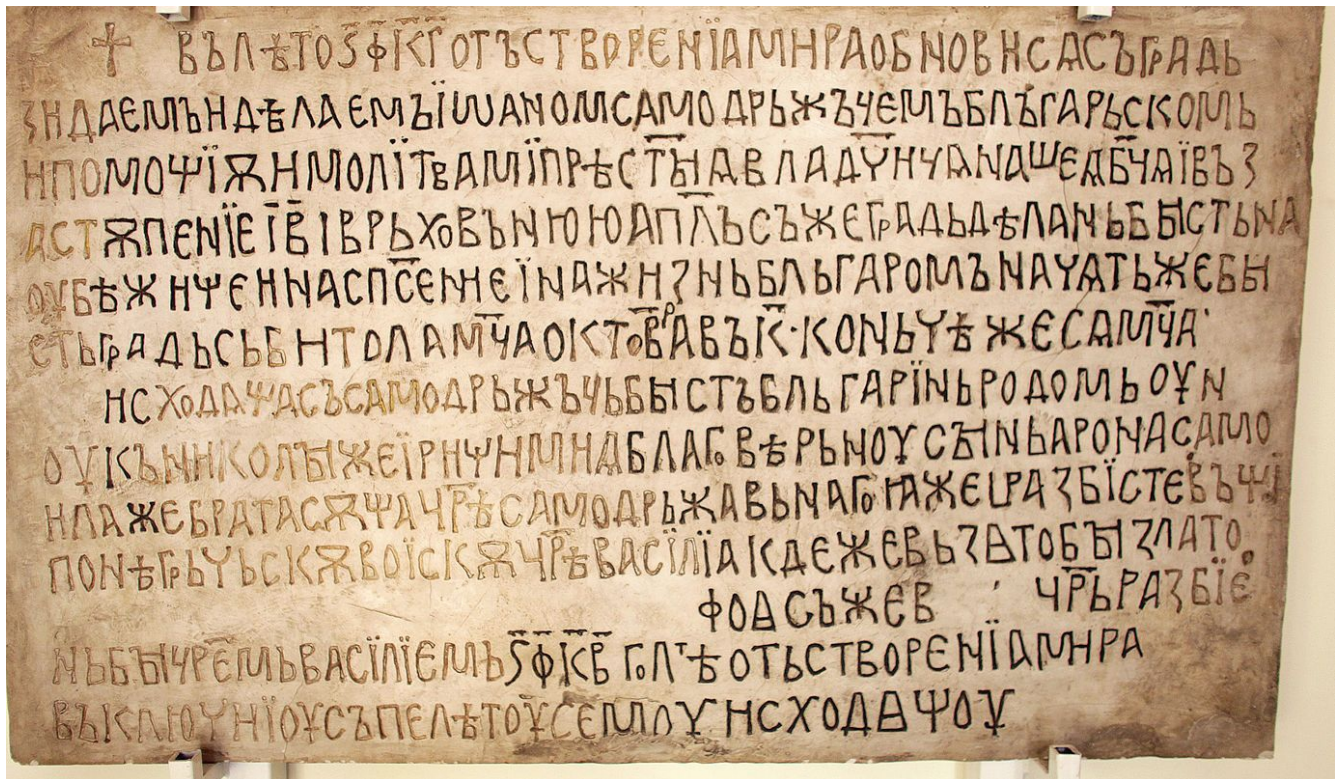 † ВЪЛѢТОЅ҃Ф҃К҃Г҃ОТЪСТВОРЕНЇАМИРАОБНОВИСѦСЪГРАДЬ
ЗИДАЕМЪИДѢЛАЕМЪЇѠАНОМСАМОДРЬЖЪЧЕМЪБЛЪГАРЬСКОМЬ
ИПОМОЩЇѪИМОЛЇТВАМЇПРѢСТ҃ЫѦВЛАДЧ҃ИЧѦНАШЕѦБ҃ЧѦЇВЪЗ
АСТѪПЕНЇЕЇВ҃ІВРЬХОВЪНЮЮАПЛ҃ЪСЪЖЕГРАДЬДѢЛАНЬББЫСТЬНА
ОУБѢЖИЩЕИНАСПС҃ЕНИЕЇНАЖИЗНЬБЛЬГАРОМЪНАЧѦТЬЖЕБЫ
СТЬГРАДЬСЬБИТОЛѦМЦ҃АОКТОВ҃РАВЪК҃·КОНЬЧѢЖЕСѦМЦ҃А
ИСХОДѦЩАСЪСАМОДРЬЖЪЧЬБЫСТЪБЛЬГАРЇНЬРОДОМЬОУН
ОУКЪНИКОЛЫЖЕЇРИѰИМИѦБЛАГОВѢРЬНОУСЫНЬАРОНАСАМО
ИЛАЖЕБРАТАСѪЩАЦР҃ѢСАМОДРЬЖАВЬНАГОꙖЖЕЇРАЗБЇСТЕВЪЩЇ
ПОНѢГРЬЧЬСКѪВОЇСКѪЦР҃ѢВАСЇЛЇАКДЕЖЕВЬЗѦТОБЫЗЛАТО
ФОѦСЪЖЕВ ЦР҃ЬРАЗБЇЕ
НЬБЫЦР҃ЕМЬВАСЇЛЇЕМЬЅ҃Ф҃К҃В҃ГОЛ'ѢОТЬСТВОРЕНЇАМИРА
ВЪКЛЮЧИЇОУСЪПЕЛѢТОУСЕМОУИСХОДѦЩОУ